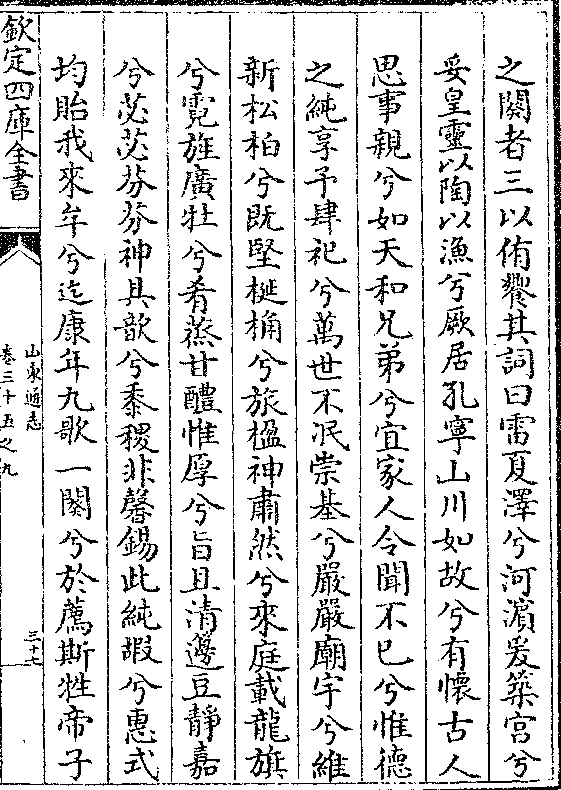 之闋者三以侑饗其詞曰雷夏澤兮河濱爰築宫兮
妥皇靈以陶以漁兮厥居孔寧山川如故兮有懷古人
思事親兮如天和兄弟兮宜家人令聞不已兮惟德
之純享予肆祀兮萬世不泯崇基兮嚴嚴廟宇兮維
新松柏兮既堅梴桷兮旅楹神肅然兮來庭載龍旗
兮霓旌廣牡兮肴蒸甘醴惟厚兮旨且清籩豆靜嘉
兮苾苾芬芬神具歆兮黍稷非馨錫此純嘏兮惠式
均貽我來牟兮迄康年九歌一闋兮於薦斯牲帝子
欽定四庫全書
山東通志
卷三十五之九
三十七